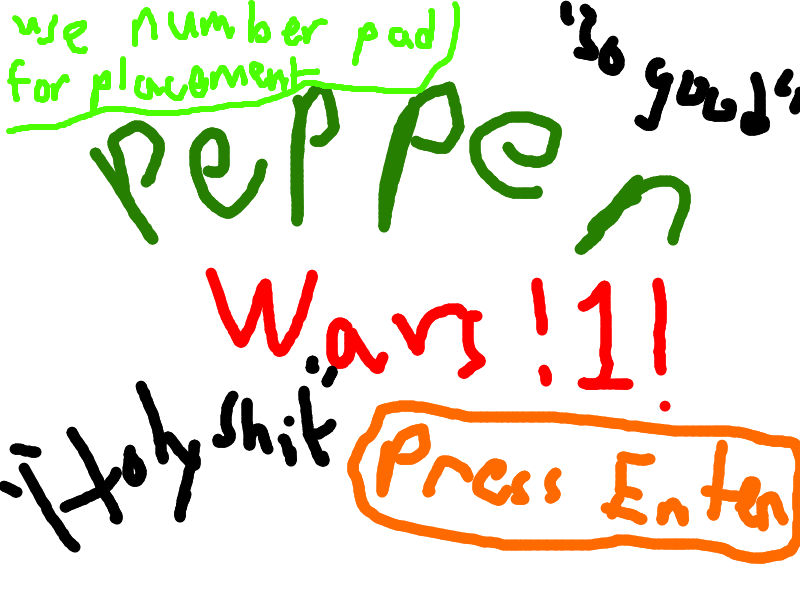 use number pad
for placement
"so good"
pepper
Wars !1!
"Holy shit"
Press Enter